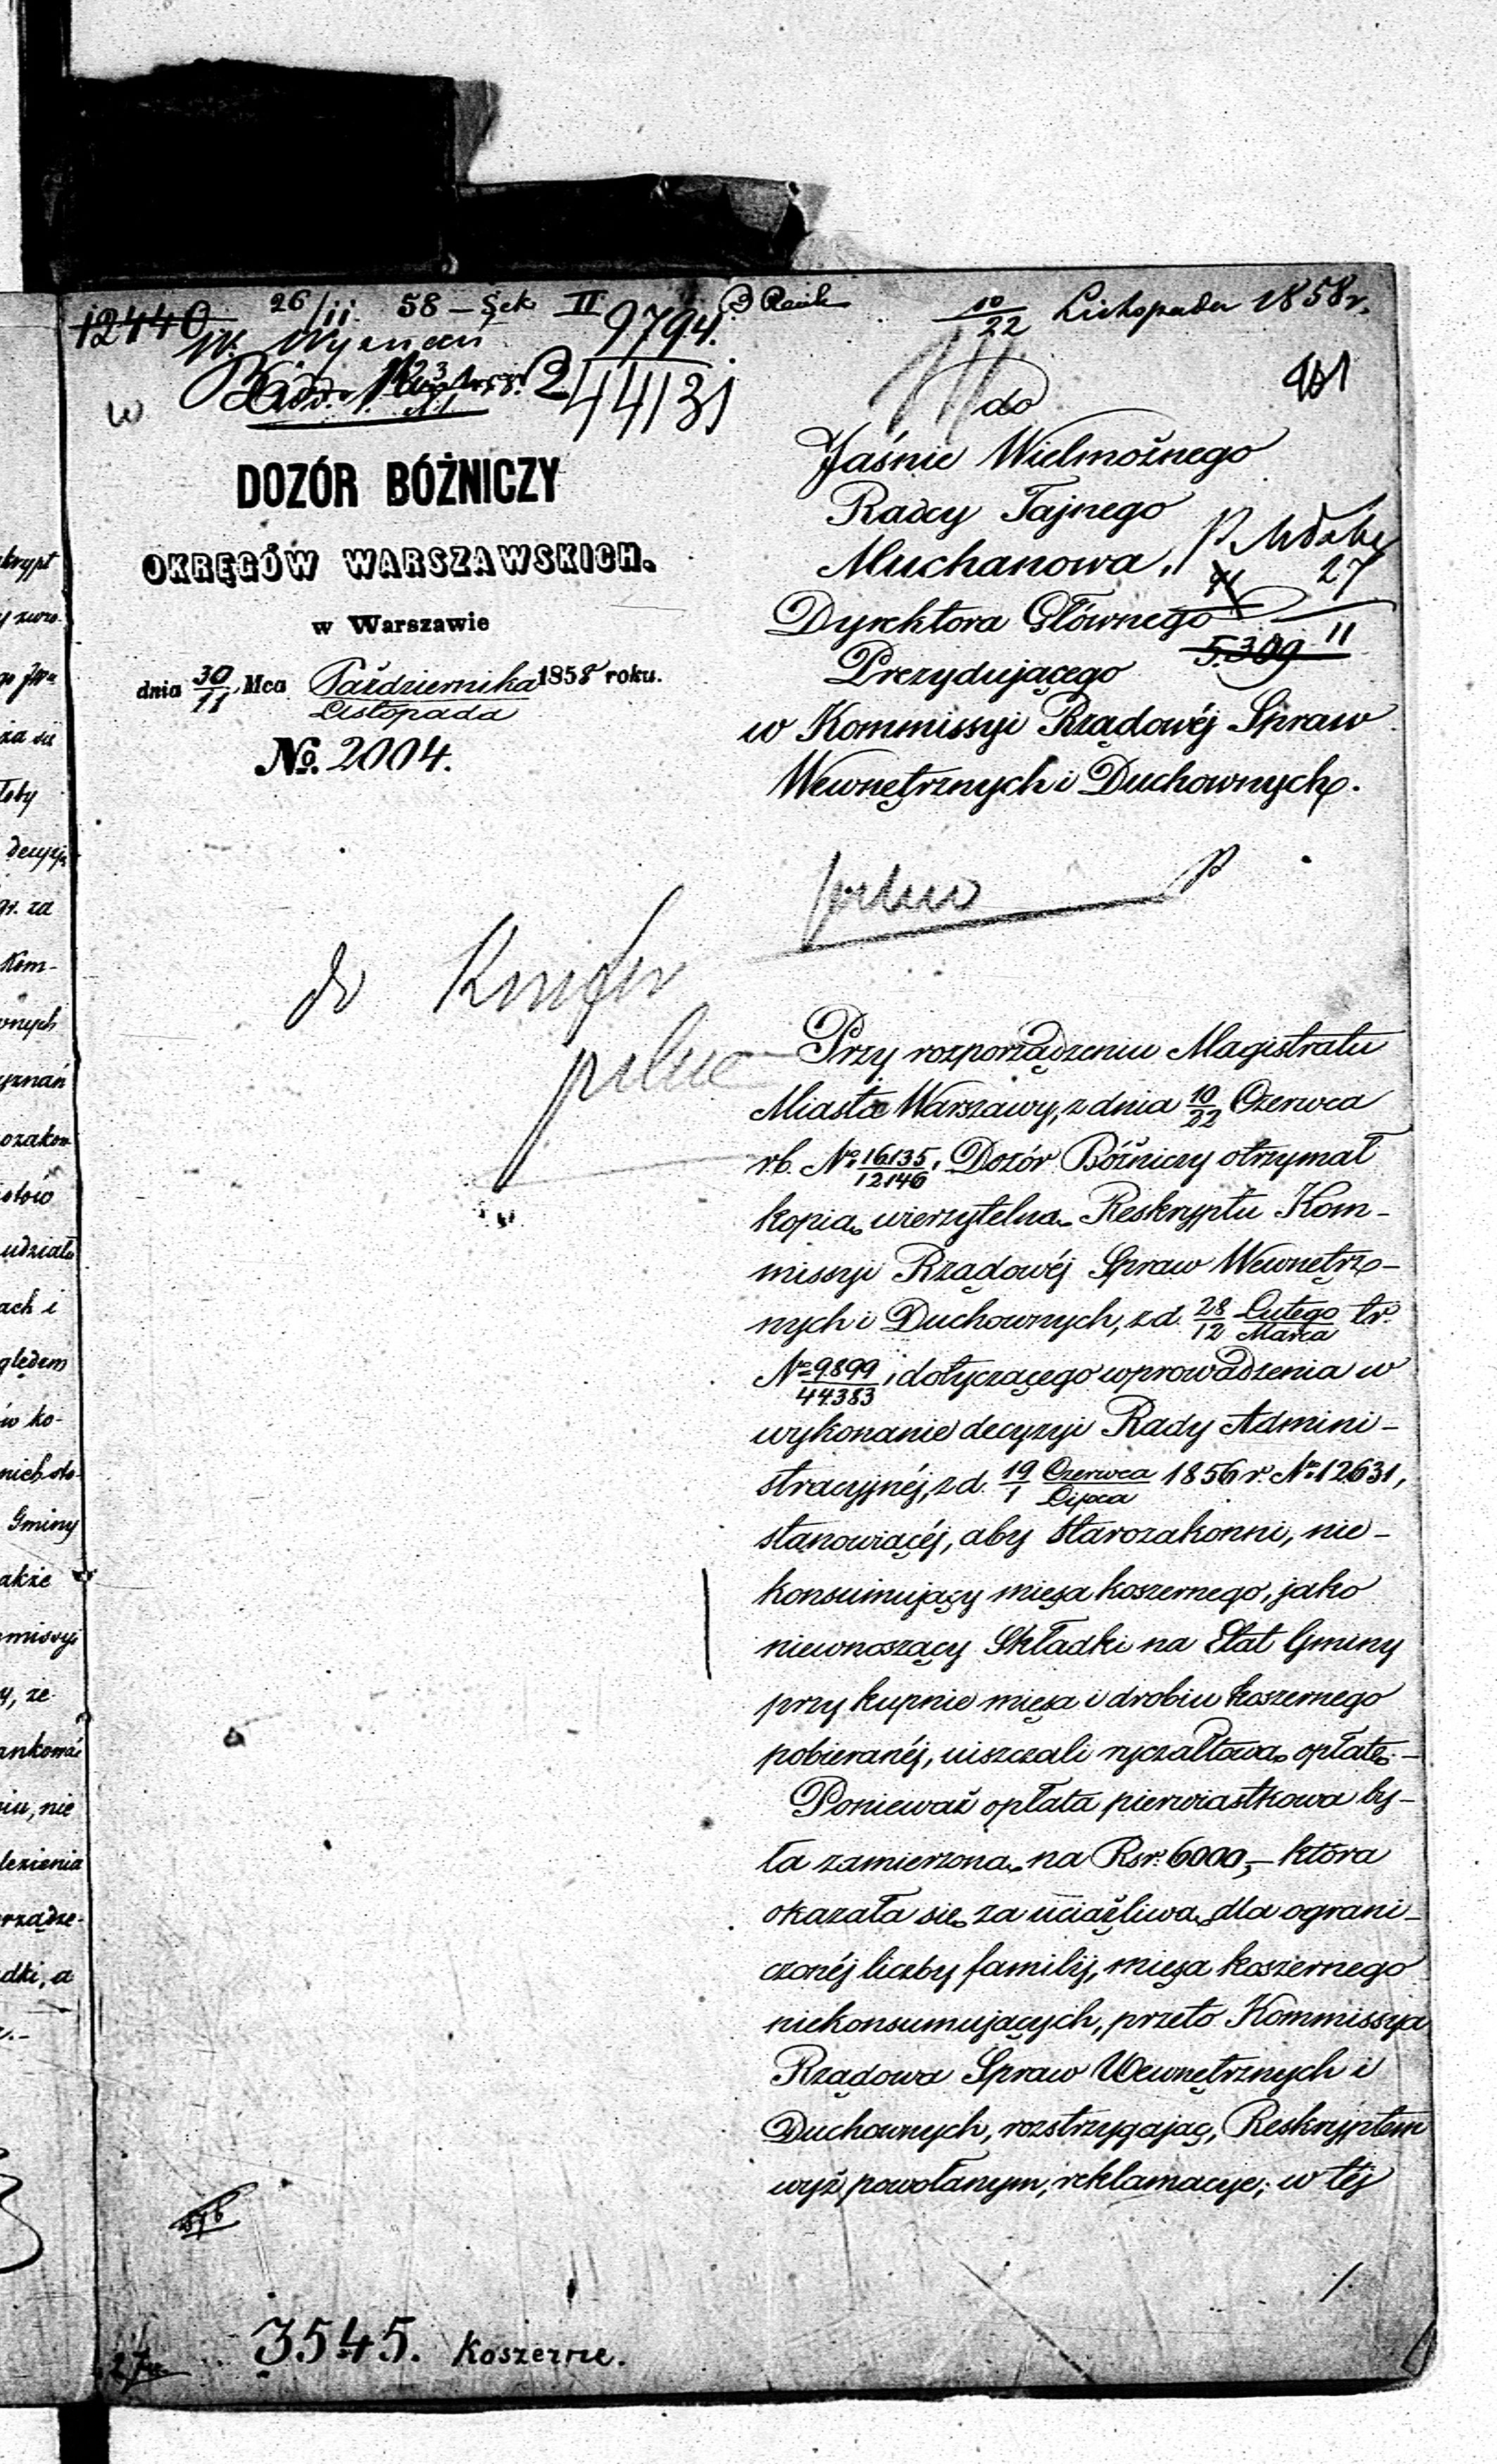 12440 26/11 58 – Sek II 9794. 10/22 Listopada 1858 r.
44131
461
w
DOZÓR BÓŻNICZY
OKRĘGÓW WARSZAWSKICH.
w Warszawie
dnia 30/11 Mca Października/Listopada 1858 roku.
No. 2004.
do
Jaśnie Wielmożnego
Radcy Tajnego
Muchanowa,
27
Dyrektora Głównego
11
5.309
Prezydującego
w Kommissyi Rządowéj Spraw
Wewnętrznych i Duchownych.
pilno
do
pilne
Przy rozporządzeniu Magistratu
Miasta Warszawy, z dnia 10/22 Czerwca
rb. No. 16135/12146, Dozór Bóżniczy otrzymał
kopią wierzytelną Reskryptu Kom-
missyi Rządowéj Spraw Wewnętrz-
nych i Duchownych, z d. 28/12 Lutego/Marca tr.
No. 9899/44383, dotyczącego wprowadzenia w
wykonanie decyzyi Rady Admini-
stracyjnéj, z d. 19/1 Czerwca/Lipca 1856 r. No. 12631,
stanowiącéj, aby Starozakonni, nie-
konsumujący mięsa koszernego, jako
niewnoszący Składki na Etat Gminy
przy kupnie mięsa i drobiu koszernego
pobieranéj, uiszczali ryczałtową opłatę.–
Ponieważ opłata pierwiastkowa by-
ła zamierzoną na Rsr. 6000,– która
okazała się za uciążliwą dla ograni-
czonéj liczby familij, mięsa koszernego
niekonsumujących, przeto Kommissya
Rządowa Spraw Wewnętrznych i
Duchownych, rozstrzygając, Reskryptem
wyż powołanym, reklamacye, w téj
/.
3545. Koszerne.